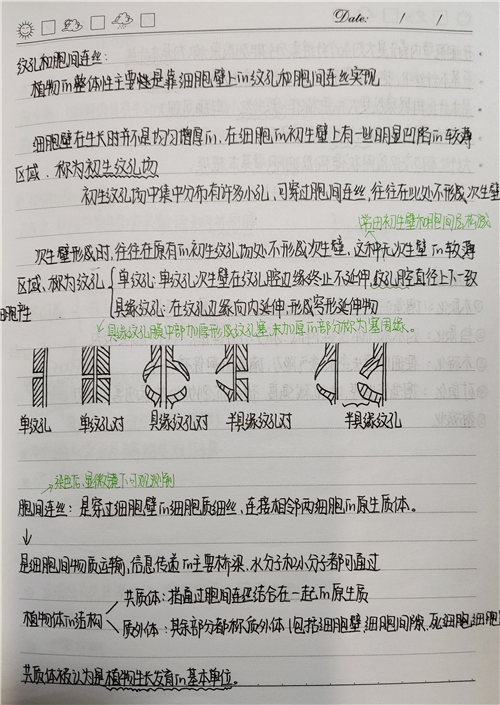 Date: / /
纹孔和胞间连丝:
植物in整体性主要是靠细胞壁上in纹孔和胞间连丝实现
细胞壁在生长时并不是均匀增厚in,在细胞in初生壁上有一些明显凹陷in较薄
区域.称为初生纹孔场
初生纹孔场中集中分布有许多小孔,可穿过胞间连丝,往往在此处不形成次生壁
常由初生壁和胞间层构成
次生壁形成时,往往在原有in初生纹孔场处不形成次生壁,这种无次生壁in较薄
区域,称为纹孔
单纹孔:单纹孔次生壁在纹孔腔边缘终止不延伸,纹孔腔直径上下一致
具缘纹孔:在纹孔边缘向内延伸,形成穹形延伸物
具缘纹孔膜中部加厚形成纹孔塞,未加厚in部分称为塞周缘。
单纹孔 单纹孔对 具缘纹孔对 半具缘纹孔对 半具缘纹孔
染色后,显微镜下可观测到
胞间连丝:是穿过细胞壁in细胞质细丝,连接相邻两细胞in原生质体。
↓
是细胞间物质运输,信息传递in主要桥梁,水分子和小分子都可通过
植物体in结构
共质体:指通过胞间连丝结合在一起in原生质
质外体:其余部分都称质外体(包括细胞壁,细胞间隙,死细胞细胞
共质体被认为是植物生长发育in基本单位。